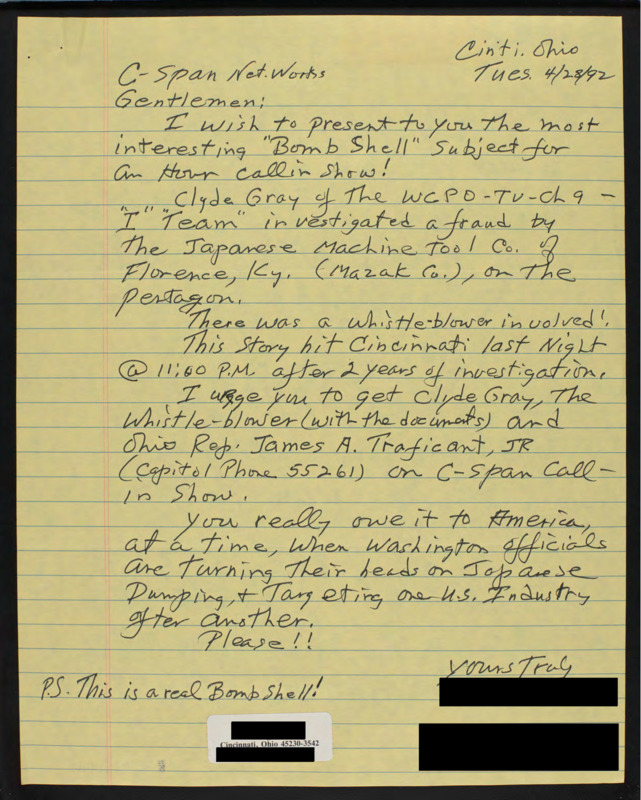 Cinti. Ohio
Tues. 4/28/92
C-Span Net.Works
Gentlemen:
I wish to present to you the most
interesting "Bomb Shell" Subject for
an Hour callin show!
Clyde Gray of The WCPO-TV-Ch 9 -
"I" "Team" investigated a fraud by
the Japanese Machine Tool Co. of
Florence, Ky. (Mazak Co.), on The
Pentagon.
There was a whistle-blower involved!
This Story hit Cincinnati last Night
@ 11:00 P.M. after 2 years of investigation.
I urge you to get Clyde Gray, The
Whistle-blower (with the documents) and
Ohio Rep. James A. Traficant, JR
(Capitol Phone 55261) on C-Span Call-
in Show.
You really owe it to America,
at a time, when Washington officials
are turning Their heads on Japanese
Dumping, & Targeting one U.S. Industry
after another.
Please!!
Yours Truly
P.S. This is a real Bomb Shell!
Cincinnati, Ohio 45230-3542